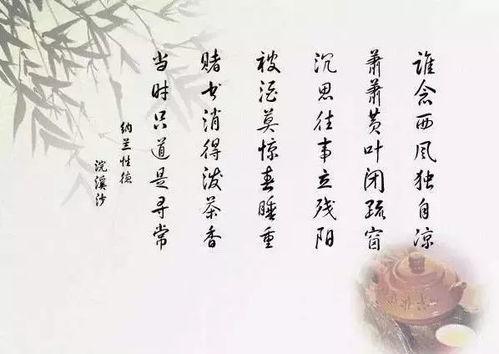 谁念西风独自凉
萧萧黄叶闭疏窗
沉思往事立残阳
被酒莫惊春睡重
赌书消得泼茶香
当时只道是寻常
纳兰性德
浣溪沙